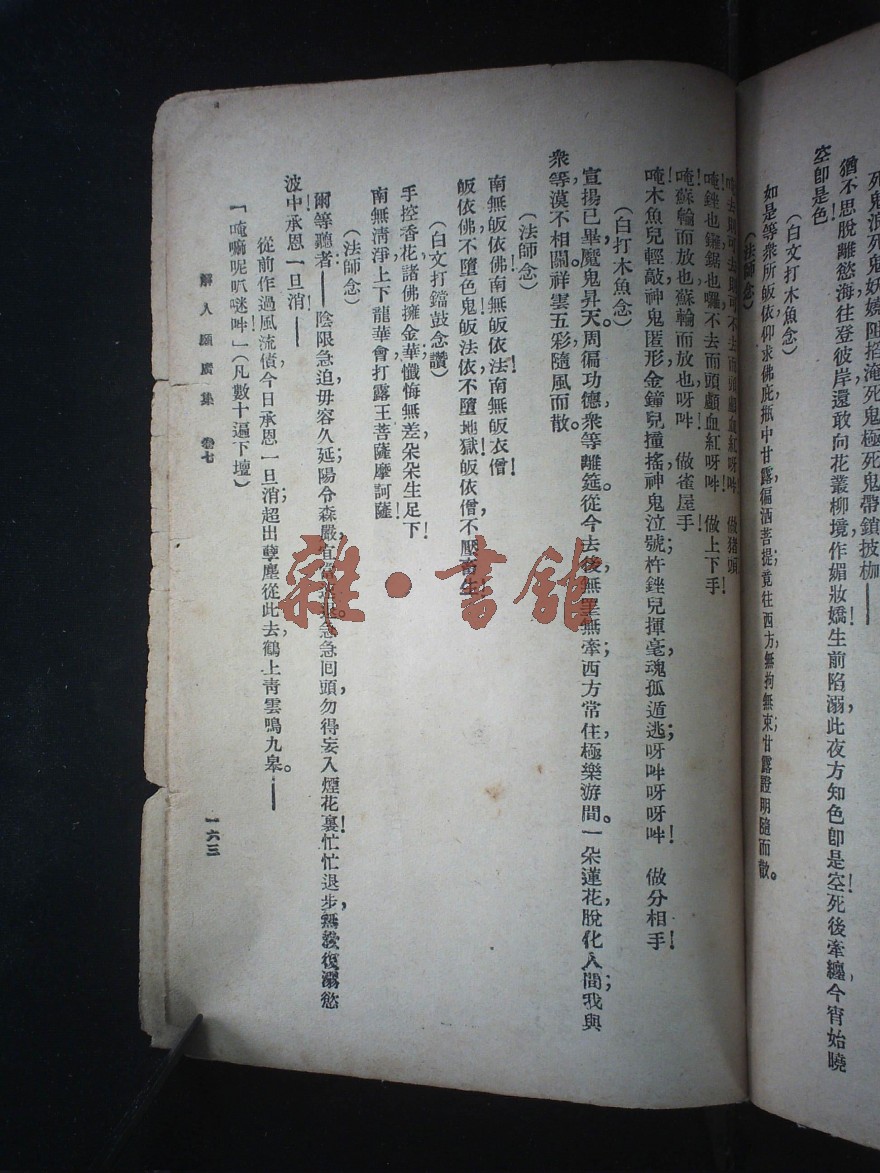 死鬼浪死鬼妖嬈阻搯淹死鬼極死鬼帶鎖披枷——
猶不思脫離慾海往登彼岸還敢向花叢柳境作媚妝嬌生前陷溺此夜方知色卽是空死後牽纏今宵始曉
空卽是色！
（白文打木魚念）
如是等衆所皈依仰求佛庇瓶中甘露徧洒菩提竟往西方無拘無束甘露證明隨而散。
（法師念）
去則可去則可不去而頭顱血紅呀吽　做猪頭
唵銼也鑼鋸也囉不去而頭顱血紅呀吽！　做上下手！
唵蘇輪而放也蘇輪而放也呀吽！　做雀屋手！
唵木魚兒輕敲神鬼匿形金鐘兒撞搖神鬼泣號杵銼兒揮毫魂孤遁逃；呀吽呀呀吽！　做分相手！
（白打木魚念）
宣揚已畢魔鬼昇天。周徧功德衆等離筵。從今去後無罣無牽；西方常住極樂游間。一朵蓮花，脫化人間；我與
衆等漠不相關祥雲五彩隨風而散。
（法師念）
南無皈依佛南無皈依法南無皈衣僧！
皈依佛不墮色鬼皈法依不墮地獄皈依僧不壓畜生！
（白文打鐺鼓念讚）
手控香花諸佛擁金華懺悔無差朵朵生足下！
南無淸淨上下龍華會打露王菩薩摩訶薩！
（法師念）
爾等聽者：——陰限急迫毋容久延陽令森嚴宜當急急回頭，勿得妄入煙花裏！忙忙退步，無欲復溺慾
波中承恩一旦消！——
從前作過風流債，今日承恩一旦消；超出孽塵從此去，鶴上靑雲鳴九皋。——
「唵嘛呢叭𠺗吽」（凡數十遍下壇）
解人頤廣集　卷七
一六三
雜·書館